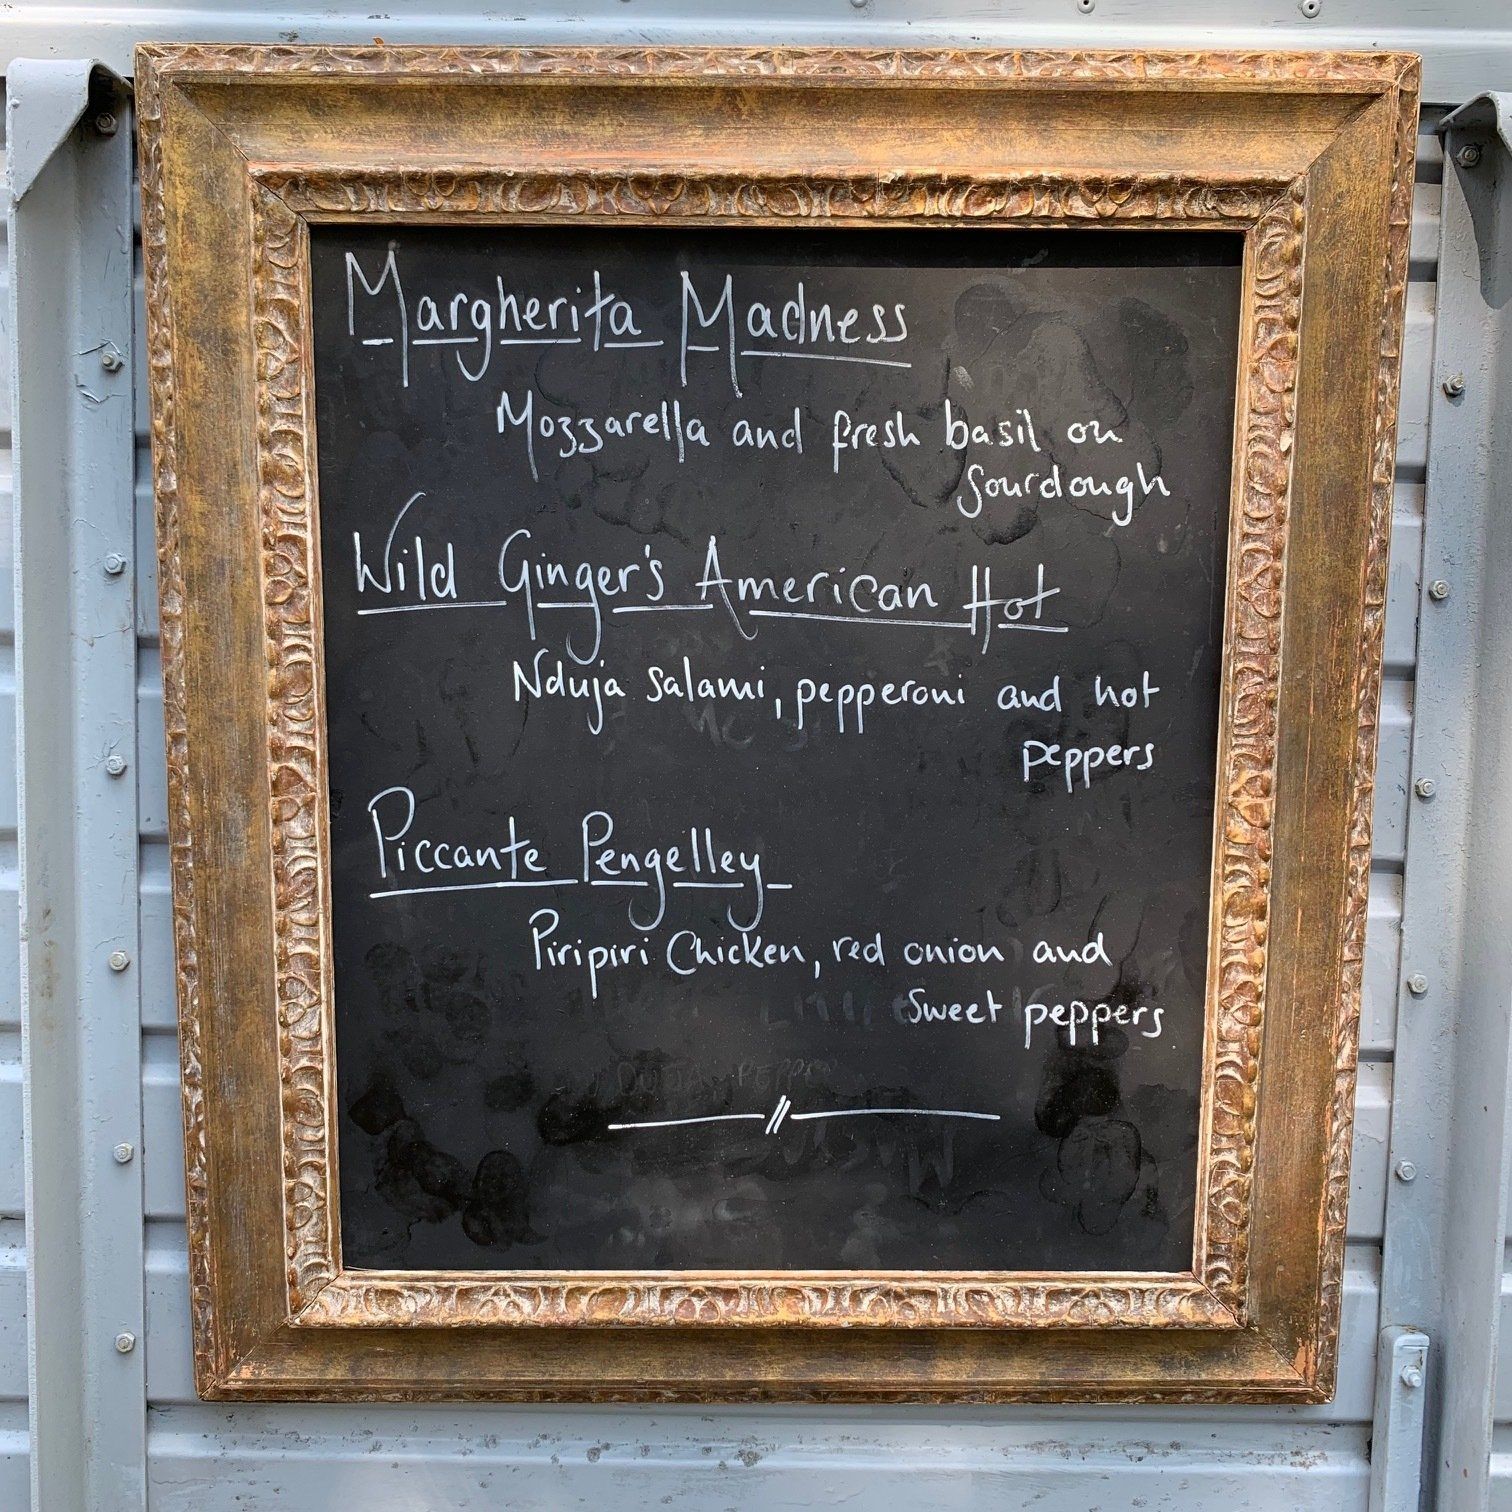 Margherita Madness
Mozzarella and fresh basil on
Sourdough
Wild Ginger's American Hot
Nduja Salami, pepperoni and hot
peppers
Piccante Pengelley
Piripiri Chicken, red onion and
Sweet peppers